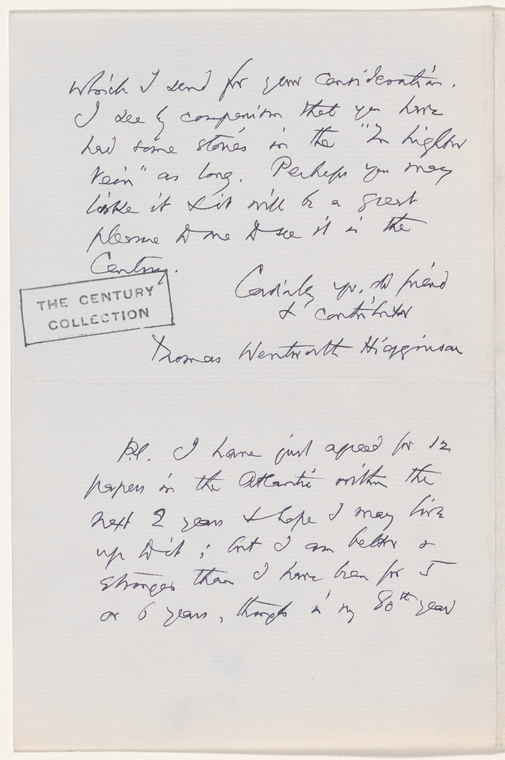 which I send for your consideration.
I see by comparison that you have
had some stories in the "In lighter
Vein" as long. Perhaps you may
like it & it will be a great
pleasure to me to see it in the
Century.
Cordially yr. old friend
& contributor
Thomas Wentworth Higginson
THE CENTURY
COLLECTION
P.S. I have just agreed for 12
papers in the Atlantic within the
next 2 years & hope I may live
up to it; but I am better &
stronger than I have been for 5
or 6 years, though in my 80th year